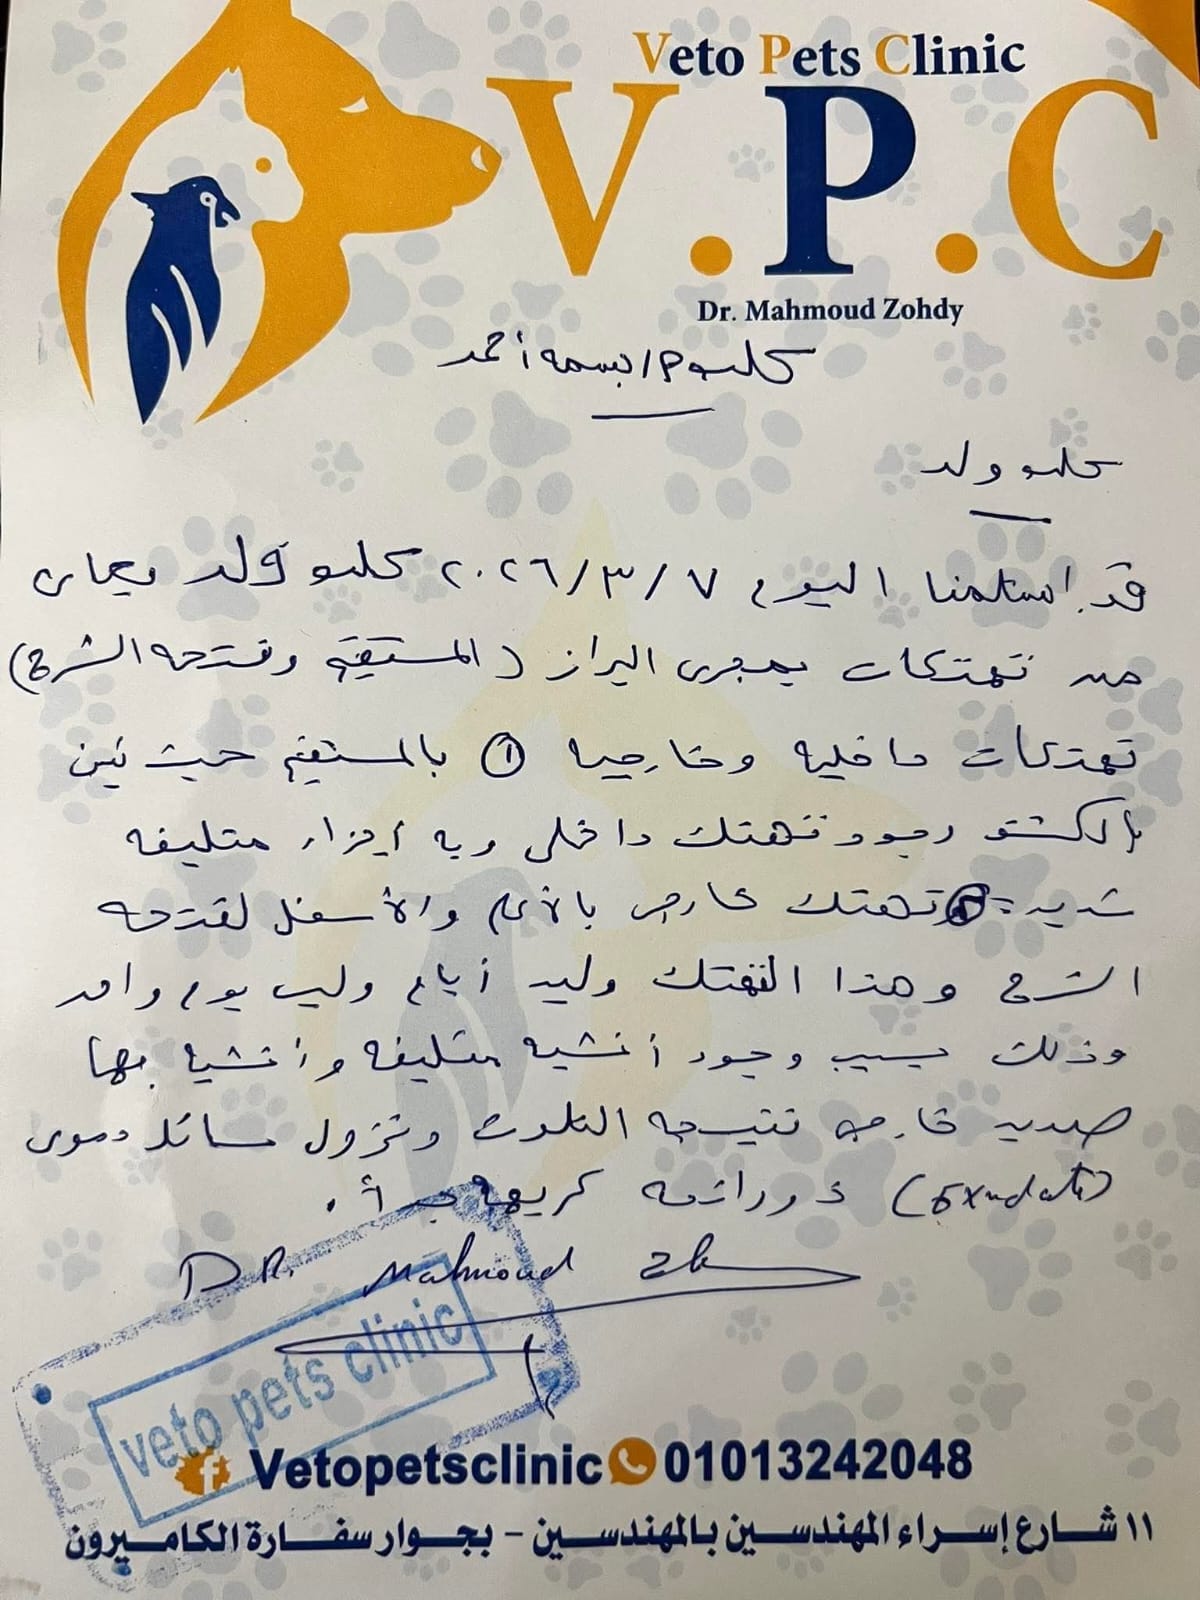 Veto Pets Clinic
V.P.C
Dr. Mahmoud Zohdy
كلب م/ بسمه أحمد
كلب ولد
قد استلمنا اليوم ٢٠٢٦/٣/٧ كلب ولد يعانى
من تهتكات بمجرى البراز (المستقيم وفتحه الشرج)
تهتكات داخليه وخارجيه ① بالمستقيم حيث تبين
بالكشف وجود تهتك داخلى وبه أجزاء متليفه
شديدة تهتك خارجى بالأعلى والأسفل لفتحه
الشرج وهذا التهتك وليد أيام وليس يوم واحد
وذلك بسبب وجود أنسجه متليفه وأنسجه بها
صديد خارجه نتيجه التلوث ونزول سائل دموى
(Exudate) ذو رائحه كريهه
DR. Mahmoud
veto pets clinic
Vetopetsclinic 01013242048
١١ شارع إسراء المهندسين بالمهندسين - بجوار سفارة الكاميرون